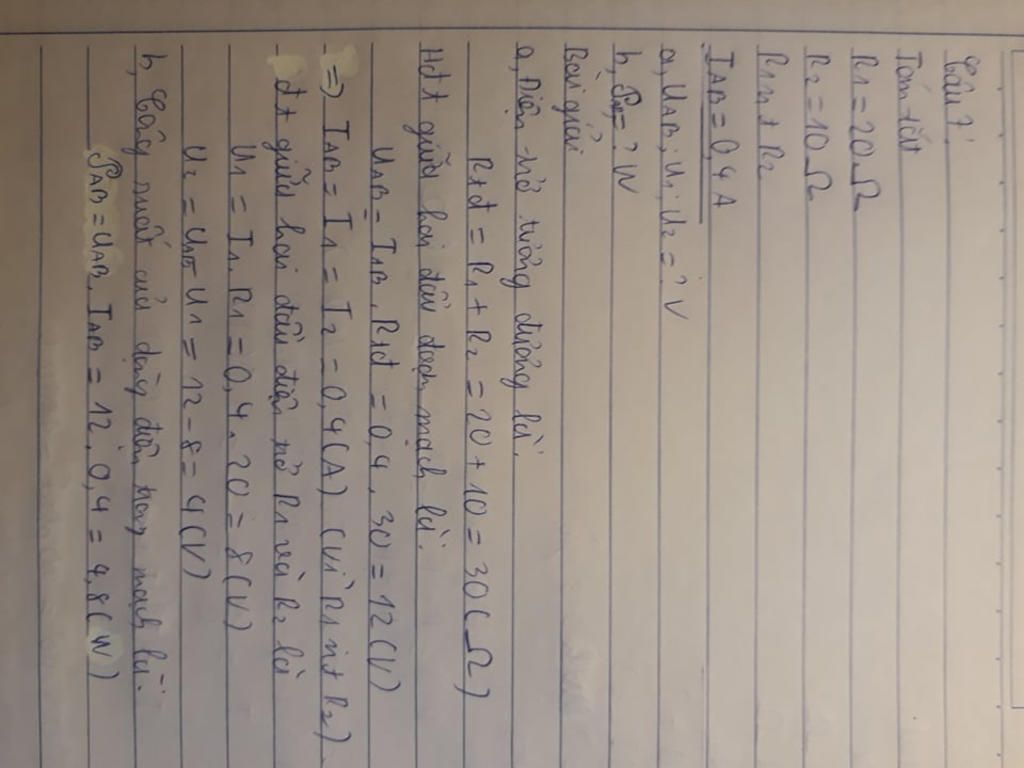 Câu 7,
Tóm tắt
R1 = 20 Ω
R2 = 10 Ω
R1 nt R2
IAB = 0,4 A
a, UAB; U1; U2 = ? V
b, PAB = ? W
Bài giải
a, Điện trở tương đương là.
Rtđ = R1 + R2 = 20 + 10 = 30 (Ω)
Hđt giữa hai đầu đoạn mạch là:
UAB = IAB . Rtđ = 0,4 . 30 = 12 (V)
=) IAB = I1 = I2 = 0,4 (A) (Vì R1 nt R2)
đt giữa hai đầu điện trở R1 và R2 là
U1 = I1 . R1 = 0,4 . 20 = 8 (V)
U2 = UAB - U1 = 12 - 8 = 4 (V)
b, Công suất của dòng điện trong mạch là:
PAB = UAB . IAB = 12 . 0,4 = 4,8 (W)